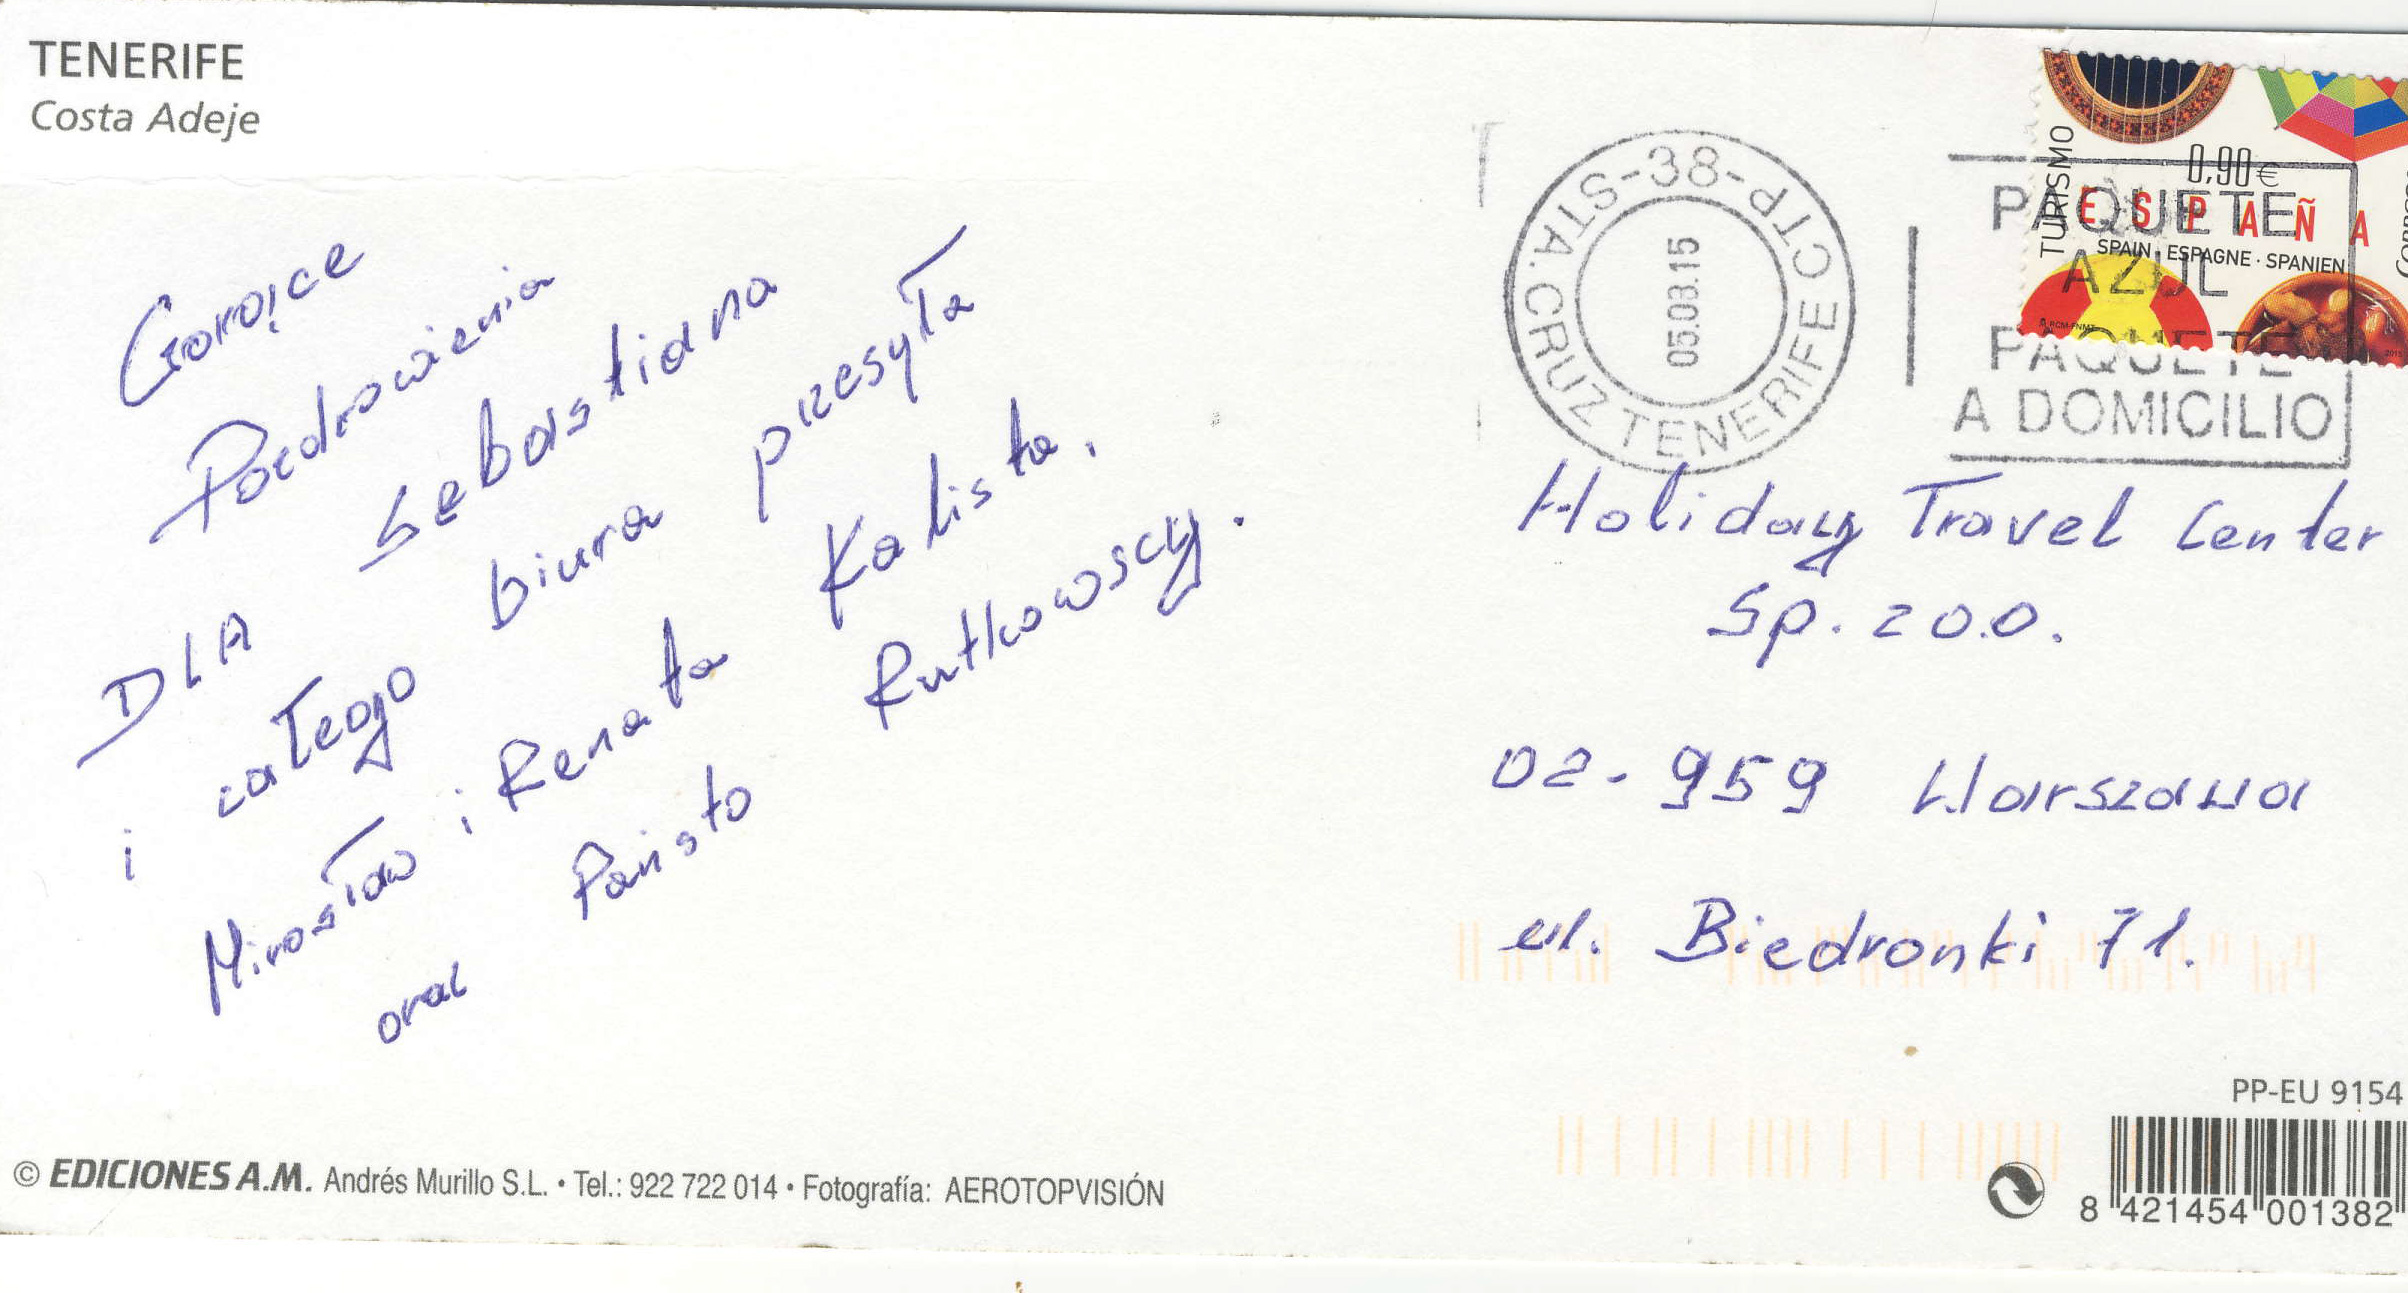 TENERIFE
Costa Adeje
Gorące
Pozdrowienia
DLA Sebastiana
i całego biura przesyła
Mirosław i Renata Kalista.
oraz Państo Rutkowscy.
STA.CRUZ TENERIFE CTP-38-
05.03.15
PAQUETE
AZUL
PAQUETE
A DOMICILIO
TURISMO
0,90€
ESPAÑA
SPAIN · ESPAGNE · SPANIEN
Holiday Travel Center
Sp. z o.o.
02-959 Warszawa
ul. Biedronki 71.
PP-EU 9154
8 421454 001382
© EDICIONES A.M. Andrés Murillo S.L. • Tel.: 922 722 014 • Fotografía: AEROTOPVISIÓN